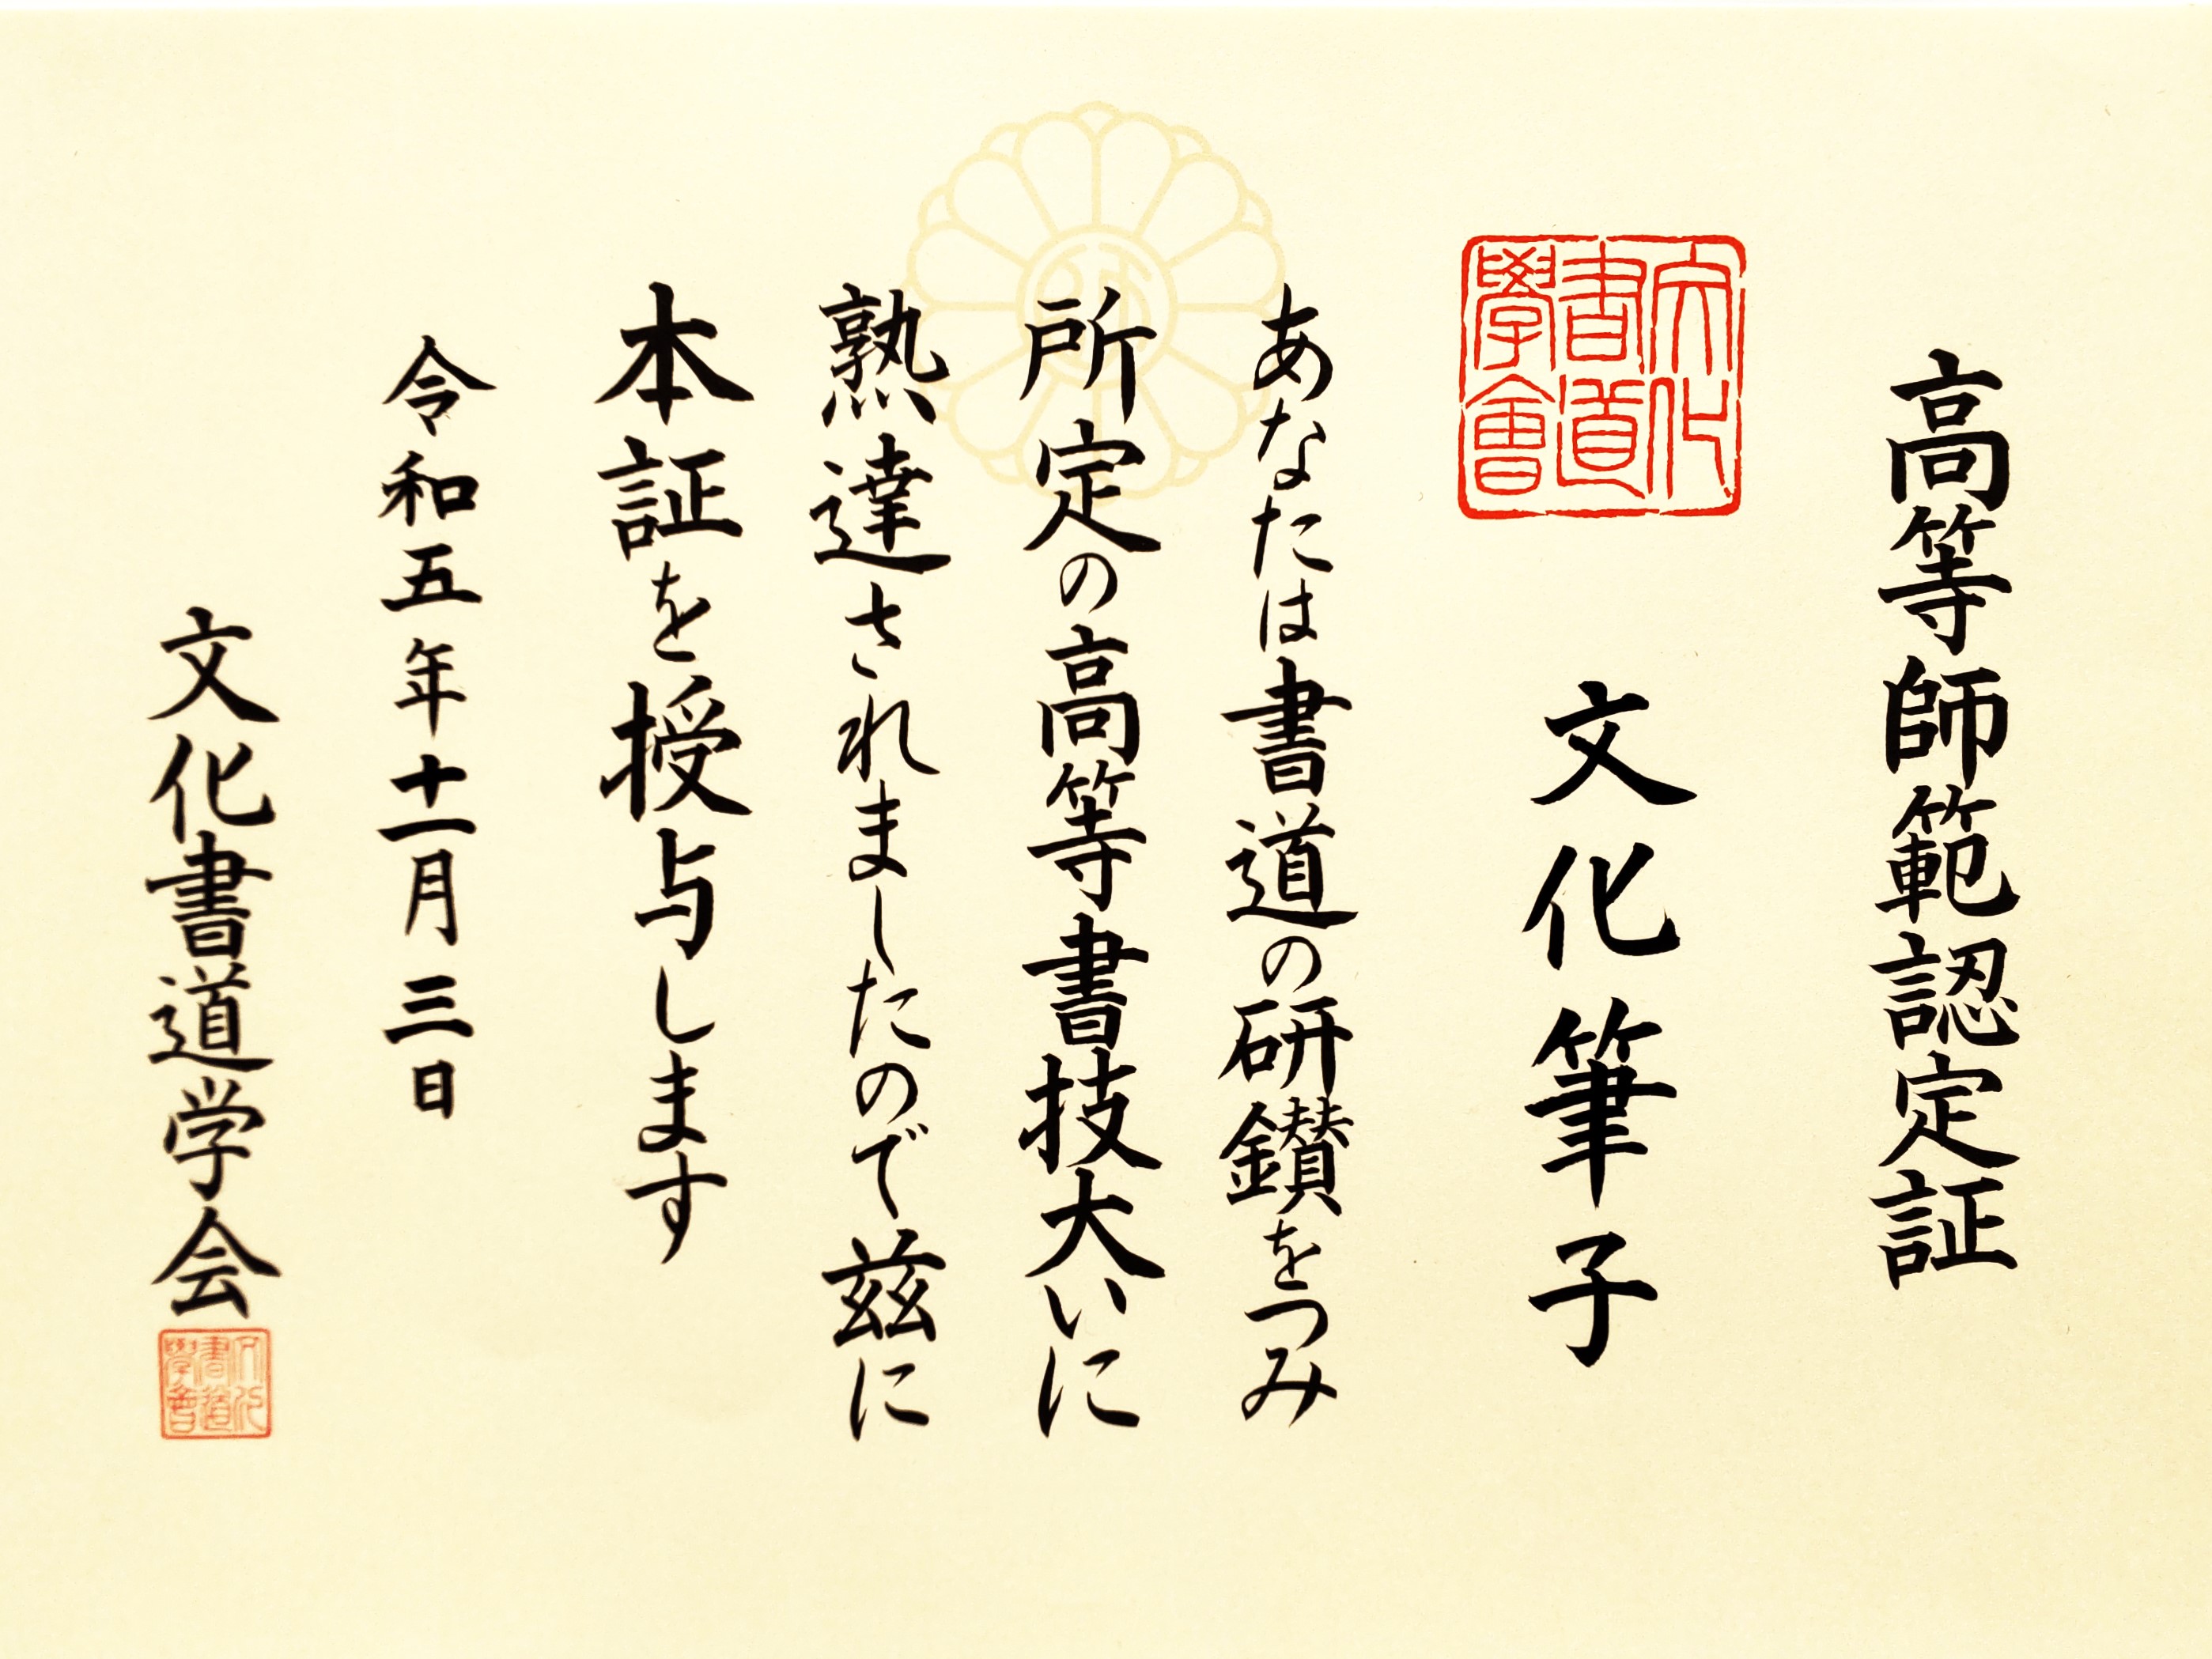 高等師範認定証
文化書道學會
文化筆子
あなたは書道の研鑽をつみ
所定の高等書技大いに
熟達されましたので茲に
本証を授与します
令和五年十一月三日
文化書道学会
文化書道學會